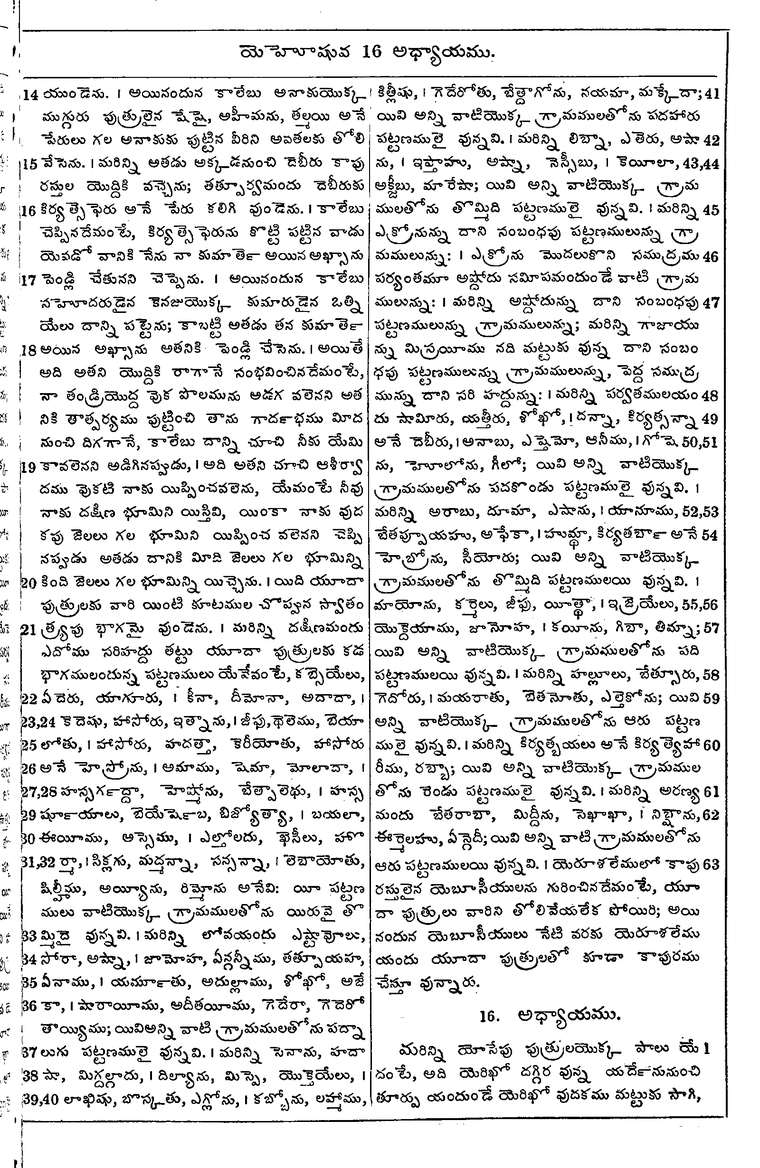 యెహోషువ 16 అధ్యాయము.
14 యుండెను. । అయినందున కాలేబు అనాకుయొక్క
ముగ్గురు పుత్రులైన షేషై, అహీమను, తల్మయి అనే
పేరులు గల అనాకుకు పుట్టిన వీరిని అవతలకు తోలి
15 వేసెను. । మరిన్ని అతడు అక్కడనుంచి దెబీరు కాపు
రస్తుల యొద్దికి వచ్చెను; తత్పూర్వమందు దెబీరుకు
16 కిర్యత్సెఫెరు అనే పేరు కలిగి వుండెను. । కాలేబు
చెప్పినదేమంటే, కిర్యత్సెఫెరును కొట్టి పట్టిన వాడు
యెవడో వానికి నేను నా కుమార్తె అయిన అఖ్సాను
17 పెండ్లి చేతునని చెప్పెను. । అయినందున కాలేబు
సహోదరుడైన కెనజుయొక్క కుమారుడైన ఒత్ని
యేలు దాన్ని పట్టెను; కాబట్టి అతడు తన కుమార్తె
18 అయిన అఖ్సాను అతనికి పెండ్లి చేసెను. । అయితే
అది అతని యొద్దికి రాగానే సంభవించినదేమంటే,
నా తండ్రియొద్ద వొక పొలమును అడగ వలెనని అత
నికి తాత్పర్యము పుట్టించి తాను గాడిదభము మీద
నుంచి దిగగానే, కాలేబు దాన్ని చూచి నీకు యేమి
19 కావలెనని అడిగినప్పుడు, । అది అతని చూచి ఆశీర్వా
దము వొకటి నాకు యిప్పించవలెను, యేమంటే నీవు
నాకు దక్షిణ భూమిని యిస్తివి, యింకా నాకు వుద
కపు జెలలు గల భూమిని యిప్పించ వలెనని చెప్పి
నప్పుడు అతడు దానికి మీది జెలలు గల భూమిన్ని
20 కింది జెలలు గల భూమిన్ని యిచ్చెను. । యిది యూదా
పుత్రులకు వారి యింటి కూటముల చొప్పున స్వాతం
21 త్ర్యపు భాగమై వుండెను. । మరిన్ని దక్షిణమందు
ఎదోము సరిహద్దు తట్టు యూదా పుత్రులకు కడ
భాగములందున్న పట్టణములు యేవేవంటే, కబ్సెయేలు,
22 ఏదెరు, యాగూరు, । కీనా, దీమోనా, అదాదా, ।
23,24 కెదెషు, హాసోరు, ఇత్నాను, । జీఫు, థెలెము, బెయా
25 లోతు, । హాసోరు, హదత్తా, కెరీయోతు, హాసోరు
26 అనే హెస్రోను, । అమాము, షెమా, మోలాదా, ।
27,28 హస్సర్గద్దా, హెష్మోను, బేత్పాలెథు, । హస్స
29 షూర్యాలు, బెయేర్షెబ, బిజ్యోత్యా, । బయలా,
30 ఈయీము, అస్సెము, । ఎల్తోలదు, ఖెసీలు, హొ
31,32 ర్మా, । సిక్లగు, మద్మన్నా, సన్సన్నా, । లెబాయోతు,
షిల్హీము, అయ్యీను, రిమ్మోను అనేవి: యీ పట్టణ
ములు వాటియొక్క గ్రామములతోను యిరువై తొ
33 మ్మిదై వున్నవి. । మరిన్ని లోవయందు ఎష్టావోలు,
34 సోరా, అష్నా, । జానోహ, ఏన్గన్నీము, తత్పూయహ,
35 ఏనాము, । యమూర్తు, అదుల్లాము, శోఖో, అజే
36 కా, । షారాయీము, అదీతయీము, గెదేరా, గెదెరో
తాయ్యిము; యివిఅన్ని వాటి గ్రామములతోను పద్నా
37 లుగు పట్టణములై వున్నవి. । మరిన్ని సెనాను, హదా
38 షా, మిగ్దల్గాదు, । దిల్యాను, మిస్పె, యొక్తెయేలు, ।
39,40 లాఖిషు, బొస్కతు, ఎగ్లోను, । కబ్బోను, లహ్మాము,
కిత్లీషు, । గెదేరోతు, బేత్దాగోను, నయమా, మక్కేదా; 41
యివి అన్ని వాటియొక్క గ్రామములతోను పదహారు
పట్టణములై వున్నవి. । మరిన్ని లిబ్నా, ఎతెరు, అషా 42
ను, । ఇఫ్తాహు, అష్నా, నెస్సీబు, । కెయీలా, 43,44
అక్జీబు, మారేషా; యివి అన్ని వాటియొక్క గ్రామ
ములతోను తొమ్మిది పట్టణములై వున్నవి. । మరిన్ని 45
ఎక్రోనున్ను దాని సంబంధపు పట్టణములున్ను గ్రా
మములున్ను: । ఎక్రోను మొదలుకొని సముద్రము 46
పర్యంతమూ అష్దోదు సమీపమందుండే వాటి గ్రామ
ములున్ను: । మరిన్ని అష్దోదున్ను దాని సంబంధపు 47
పట్టణములున్ను గ్రామములున్ను; మరిన్ని గాజాయు
న్ను మిస్రయీము నది మట్టుకు వున్న దాని సంబం
ధపు పట్టణములున్ను గ్రామములున్ను, పెద్ద సముద్ర
మున్ను దాని సరి హద్దున్ను: । మరిన్ని పర్వతములయం 48
దు షామీరు, యత్తీరు, శోఖో, । దన్నా, కిర్యత్సన్నా 49
అనే దెబీరు, । అనాబు, ఎష్తెమో, ఆనీము, । గోషె 50,51
ను, హొలోను, గీలో; యివి అన్ని వాటియొక్క
గ్రామములతోను పదకొండు పట్టణములై వున్నవి. ।
మరిన్ని అరాబు, దూమా, ఎషాను, । యానూము, 52,53
బేతప్పూయహు, అఫేకా, । హుమ్తా, కిర్యతర్బా అనే 54
హెబ్రోను, సీయోరు; యివి అన్ని వాటియొక్క
గ్రామములతోను తొమ్మిది పట్టణములయి వున్నవి. ।
మాయోను, కర్మెలు, జీఫు, యీత్తా, । ఇజ్రెయేలు, 55,56
యొక్దెయాము, జానోహ, । కయీను, గిబా, తిమ్నా; 57
యివి అన్ని వాటియొక్క గ్రామములతోను పది
పట్టణములయి వున్నవి. । మరిన్ని హల్హూలు, బేత్సూరు, 58
గెదోరు, । మయరాతు, బెతనోతు, ఎల్తెకోను; యివి 59
అన్ని వాటియొక్క గ్రామములతోను ఆరు పట్టణ
ములై వున్నవి. । మరిన్ని కిర్యత్బయలు అనే కిర్యత్యెహా 60
రీము, రబ్బా; యివి అన్ని వాటియొక్క గ్రామముల
తోను రెండు పట్టణములై వున్నవి. । మరిన్ని అరణ్య 61
మందు బేతరాబా, మిద్దీను, సెఖాఖా, । నిబ్షాను, 62
ఈర్మెలహు, ఏన్గెదీ; యివి అన్ని వాటి గ్రామములతోను
ఆరు పట్టణములయి వున్నవి. । యెరూశలేములో కాపు 63
రస్తులైన యెబూసీయులను గురించినదేమంటే, యూ
దా పుత్రులు వారిని తోలివేయలేక పోయిరి; అయి
నందున యెబూసీయులు నేటి వరకు యెరూశలేము
యందు యూదా పుత్రులతో కూడా కాపురము
చేస్తూ వున్నారు.
16. అధ్యాయము.
మరిన్ని యోసేఫు పుత్రులయొక్క పాలు యే 1
దంటే, అది యెరిఖో దగ్గిర వున్న యర్దేనునుంచి
తూర్పు యందుండే యెరిఖో వుదకము మట్టుకు సాగి,